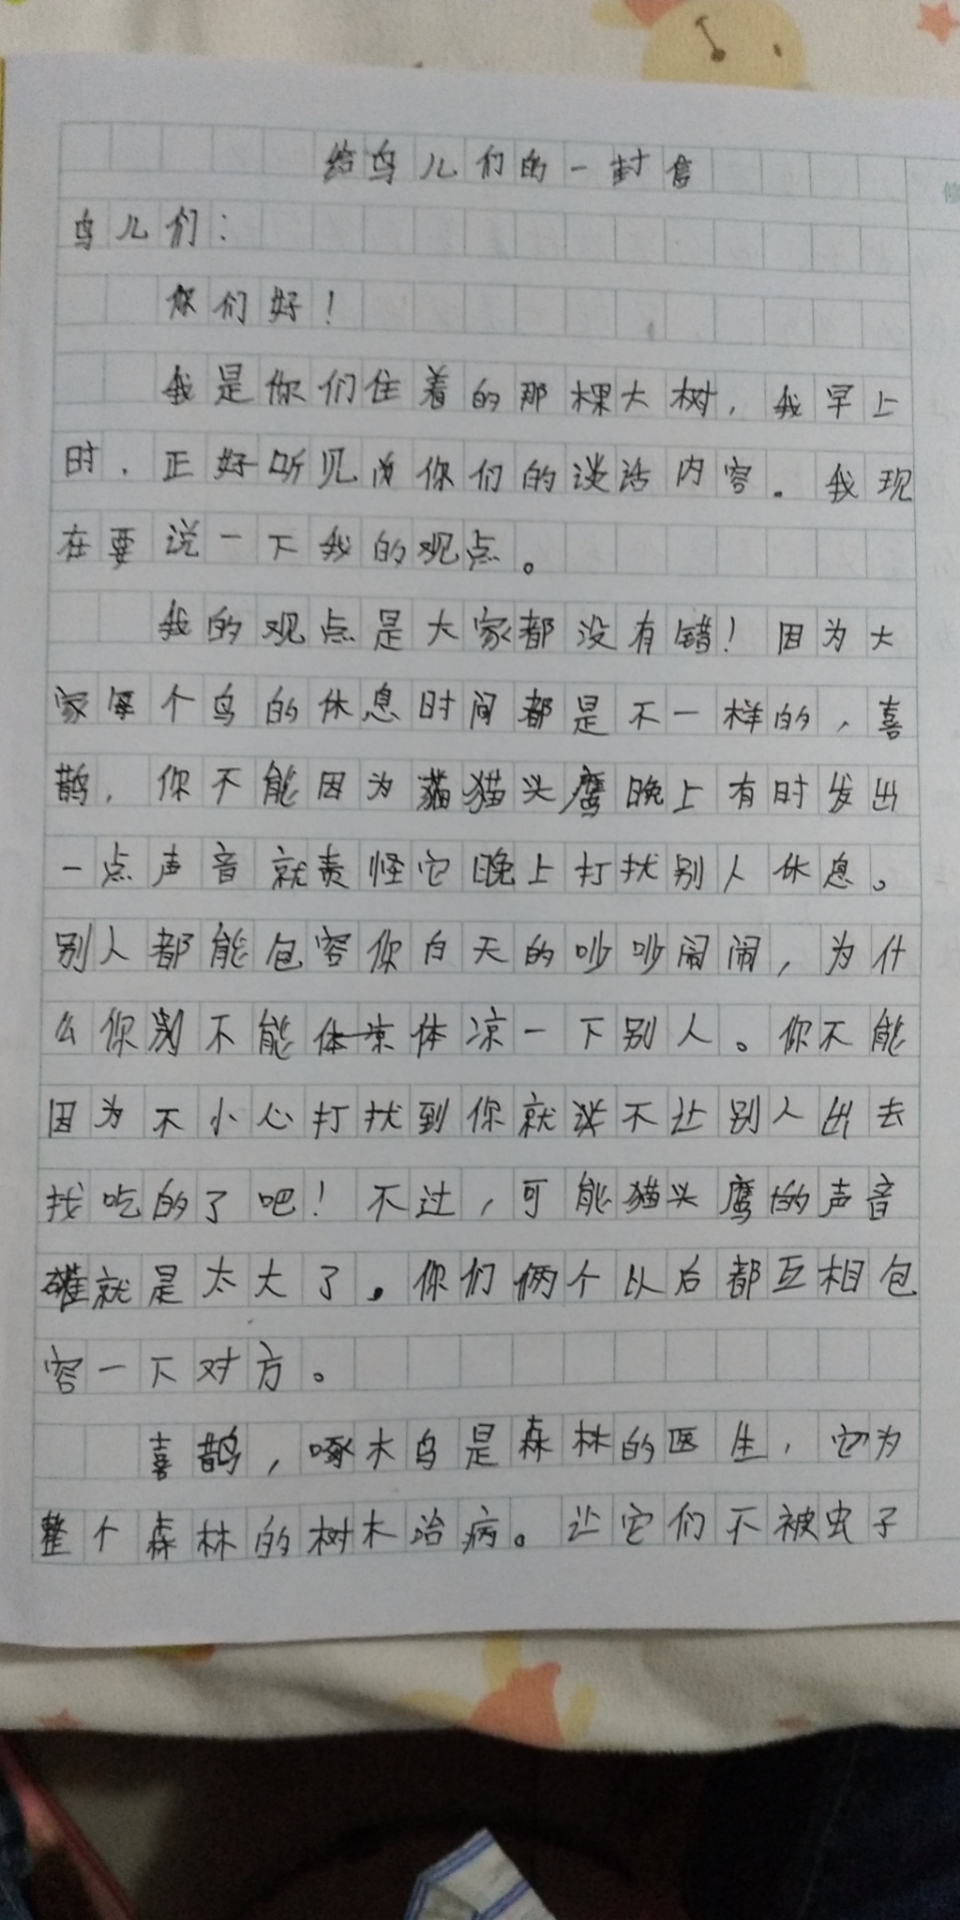 给鸟儿们的一封信
鸟儿们：
你们好！
我是你们住着的那棵大树，我早上
时，正好听见你们的谈话内容。我现
在要说一下我的观点。
我的观点是大家都没有错！因为大
家每个鸟的休息时间都是不一样的，喜
鹊，你不能因为猫头鹰晚上有时发出
一点声音就责怪它晚上打扰别人休息。
别人都能包容你白天的吵吵闹闹，为什
么你不能体凉一下别人。你不能
因为不小心打扰到你就说不让别人出去
找吃的了吧！不过，可能猫头鹰的声音
就是太大了。你们俩个以后都互相包
容一下对方。
喜鹊，啄木鸟是森林的医生，它为
整个森林的树木治病。让它们不被虫子